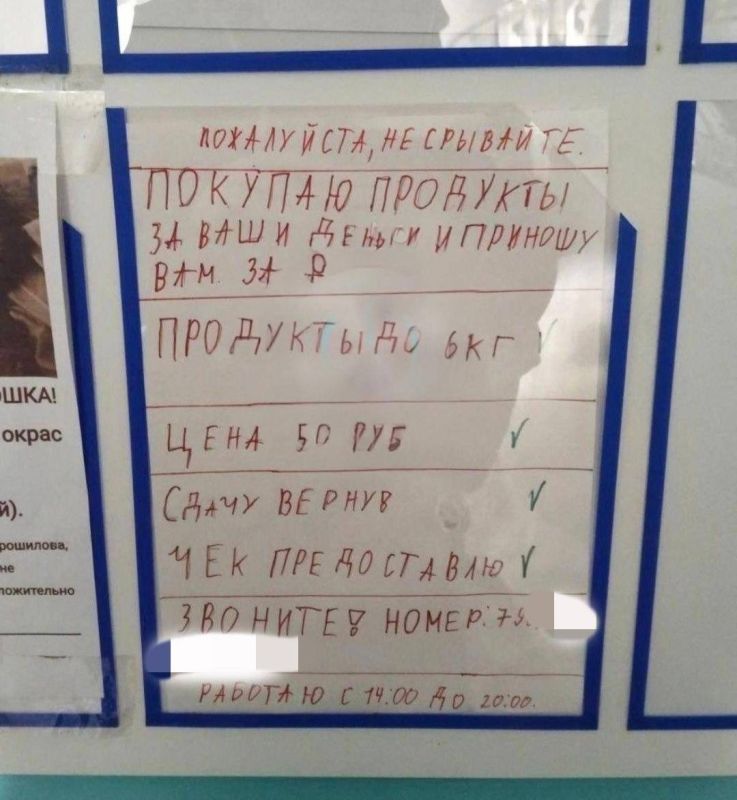 ПОЖАЛУЙСТА, НЕ СРЫВАЙТЕ.
ПОКУПАЮ ПРОДУКТЫ
ЗА ВАШИ ДЕНЬГИ И ПРИНОШУ
ВАМ. ЗА ₽
ПРОДУКТЫ ДО 6КГ ✓
ЦЕНА 50 РУБ ✓
СДАЧУ ВЕРНУВ ✓
ЧЕК ПРЕДОСТАВЛЮ ✓
ЗВОНИТЕ! НОМЕР: 79.
РАБОТАЮ С 14:00 ДО 20:00.
ОШКА!
окрас
й).
рошилова,
не
ложительно